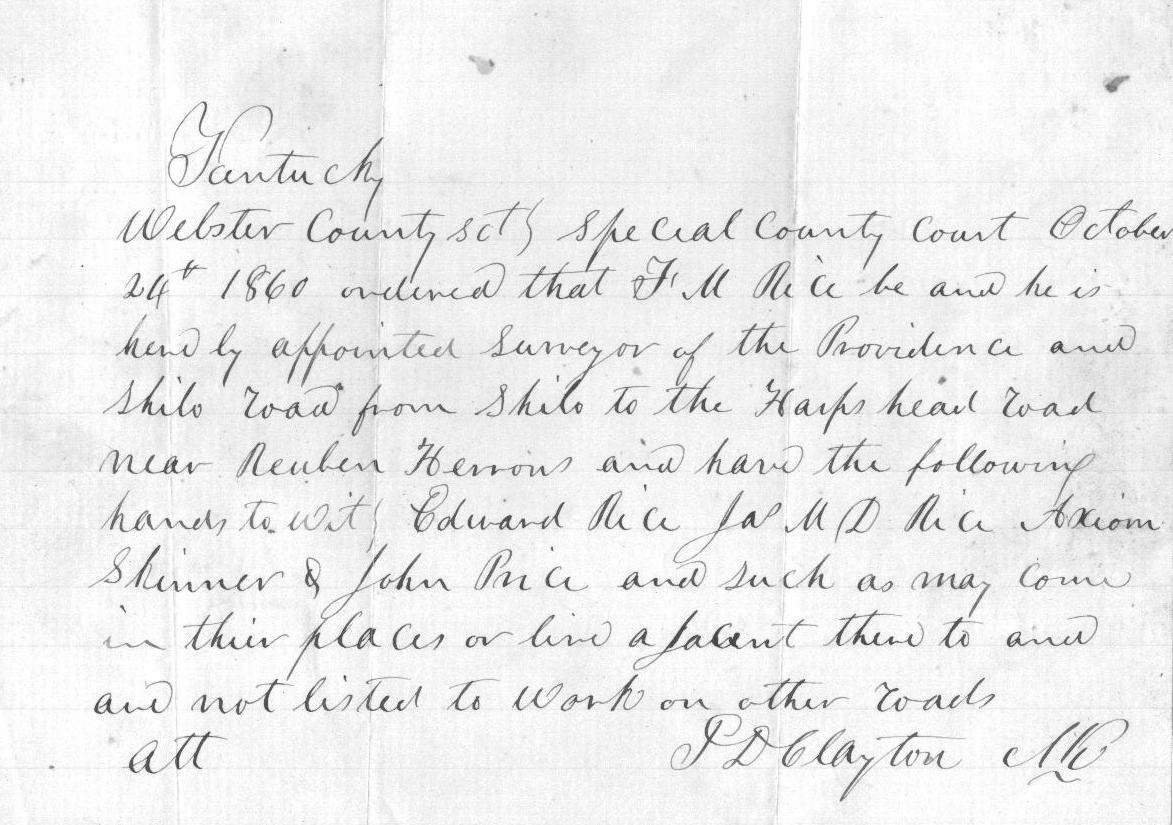 Kentucky
Webster County sct } Special County Court October
24th 1860 ordered that F M Rice be and he is
hereby appointed Surveyor of the Providence and
Shilo road from Shilo to the Harps head road
near Reuben Herrons and have the following
hands to wit } Edward Rice Jas M D Rice Axiom
Skinner & John Price and such as may come
in thier places or live ajacent there to and
are not listed to work on other roads
att P D Clayton